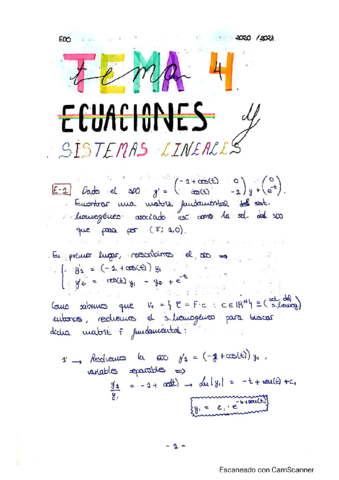 EDO 2020 / 2021
TEMA 4
ECUACIONES y
SISTEMAS LINEALES
E-1 Dado el SDO y' = ( -1 + cos(t) 0 ; cos(t) -1 ) y + ( 0 ; e^-t ).
Encontrar una matriz fundamental del sist.
homogéneo asociado así como la sol. del SDO
que pasa por
En primer lugar, reescribimos el SDO ⇒
y'1 = (-1 + cos(t)) y1
y'2 = cos(t) y1 - y2 + e^-t
Como sabemos que V0 = { φ = F·c : c ∈
entonces, resolvemos el s. homogéneo para buscar
dicha matriz F fundamental:
1' → Resolvemos la EDO y'1 = (-1 + cos(t)) y1,
variables separables ⇒
y'1 / y1 = -1 + cos(t) → Ln|y1| = -t + sen(t) + c1
y1 = c1 · e^-t+sen(t)
- 1 -
Escaneado con CamScanner